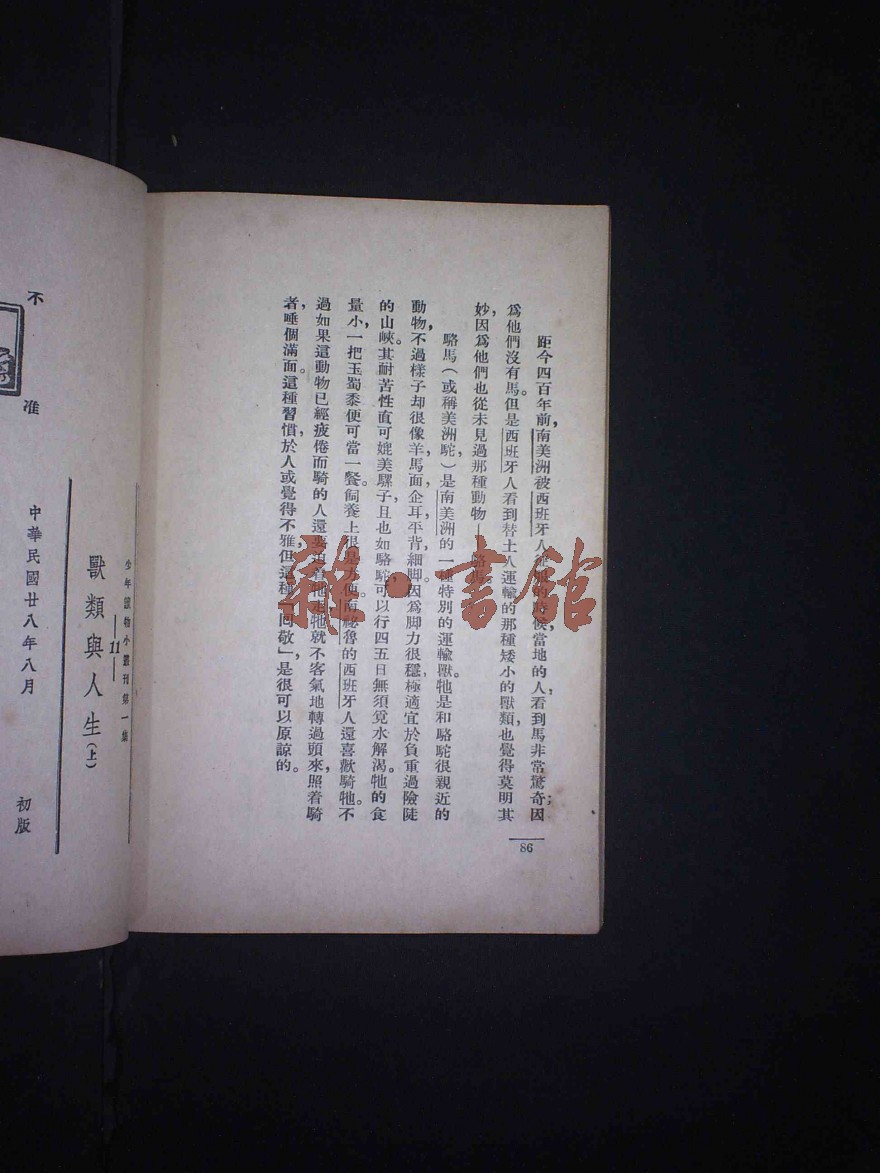 距今四百年前,南美洲被西班牙人征服的時候,當地的人,看到馬非常驚奇;因
爲他們沒有馬。但是西班牙人看到替土人運輸的那種矮小的獸類,也覺得莫明其
妙,因爲他們也從未見過那種動物——駱馬。
駱馬(或稱美洲駝)是南美洲的一種特別的運輸獸。牠是和駱駝很親近的
動物,不過樣子却很像羊,馬面,企耳,平背,細脚。因爲脚力很穩,極適宜於負重過險陡
的山峽。其耐苦性直可媲美騾子,且也如駱駝,可以行四五日無須覓水解渴。牠的食
量小,一把玉蜀黍便可當一餐。飼養上很是方便。南祕魯的西班牙人還喜歡騎牠。不
過如果這動物已經疲倦而騎的人還要迫着牠走,牠就不客氣地轉過頭來,照着騎
者,唾個滿面。這種習慣,於人或覺得不雅,但這種「回敬」是很可以原諒的。
86
少年讀物小叢刊第一集
11
獸類與人生(上)
中華民國廿八年八月 初版
不 准
雜·書館